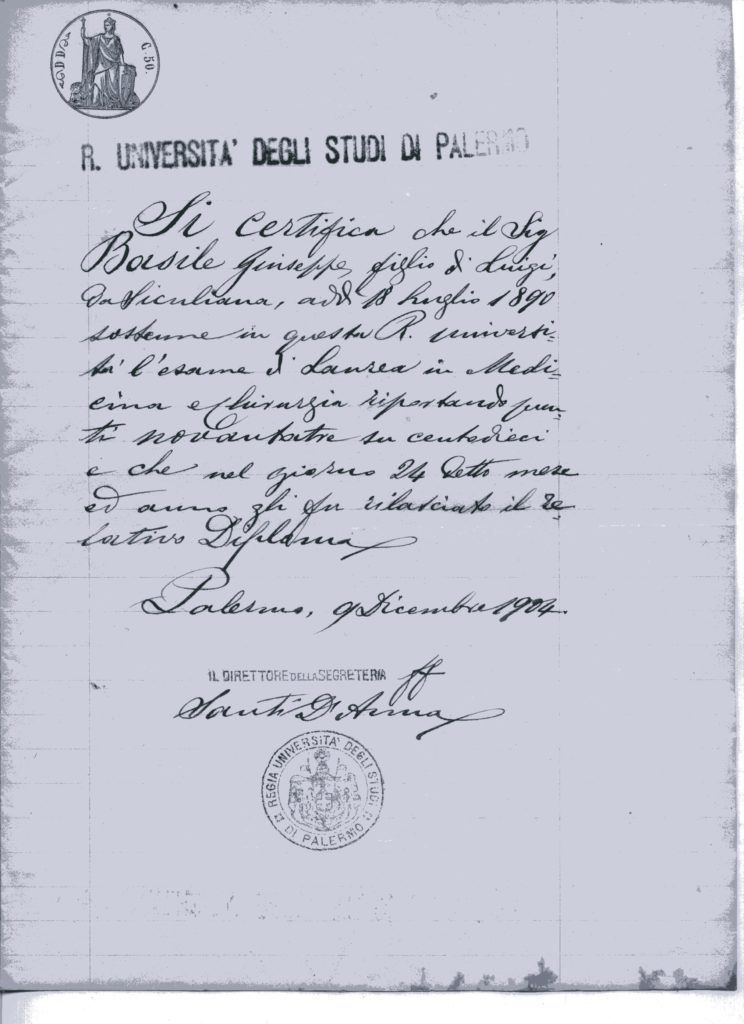 C. 50.
R. UNIVERSITA' DEGLI STUDI DI PALERMO
Si certifica che il Sig
Basile Giuseppe, figlio di Luigi,
da Siculiana, addì 18 Luglio 1890
sostenne in questa R. universi-
tà l'esame di Laurea in Medi-
cina e Chirurgia riportando pun-
ti novantatre su centodieci
e che nel giorno 24 detto mese
ed anno gli fu rilasciato il re-
lativo Diploma
Palermo, 9 Dicembre 1904.
IL DIRETTORE DELLA SEGRETERIA ff
Santi D'Anna
REGIA UNIVERSITA' DEGLI STUDI
DI PALERMO